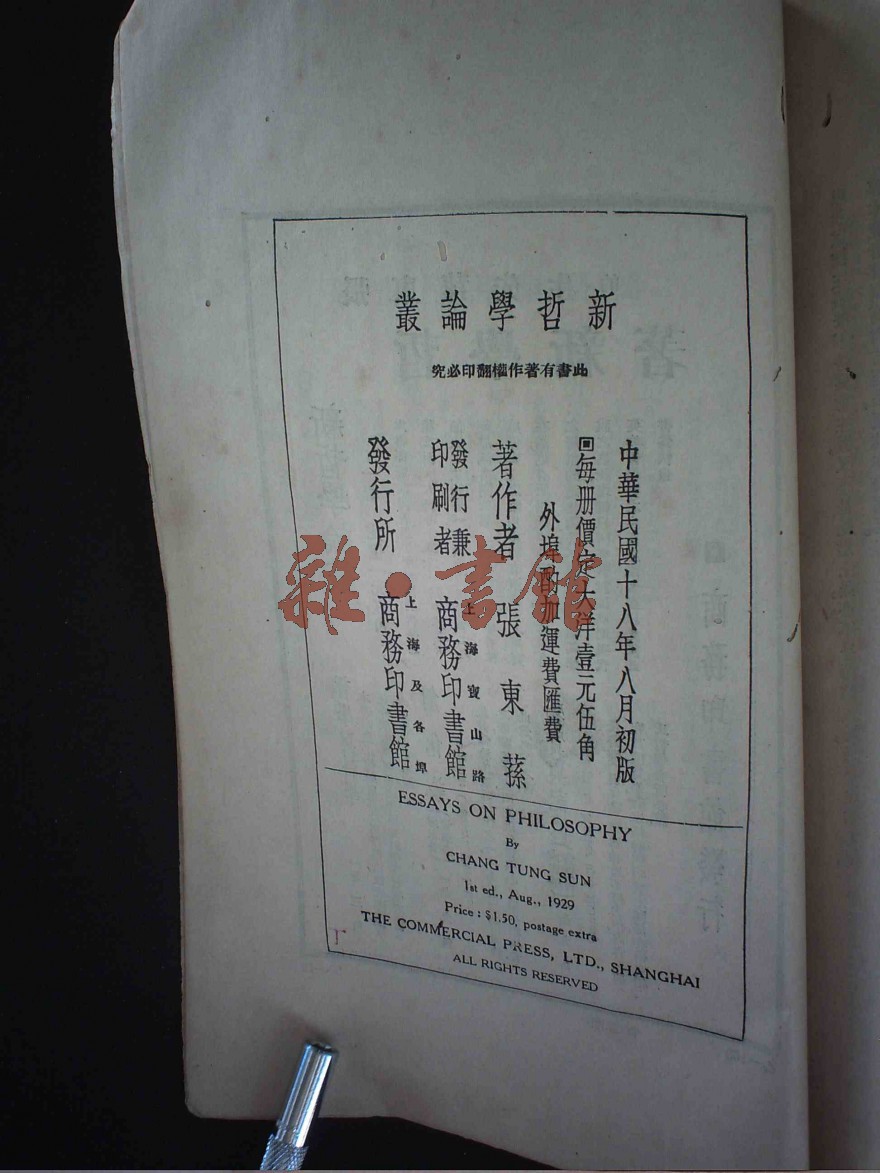 新哲學論叢
此書有著作權翻印必究
中華民國十八年八月初版
回每册價定大洋壹元伍角
外埠酌加運費匯費
著作者 張東蓀
發行兼印刷者 上海寶山路 商務印書館
發行所 上海及各埠 商務印書館
雜·書館
ESSAYS ON PHILOSOPHY
By
CHANG TUNG SUN
1st ed., Aug., 1929
Price : $1.50, postage extra
THE COMMERCIAL PRESS, LTD., SHANGHAI
ALL RIGHTS RESERVED